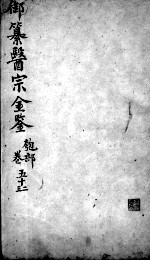 御纂醫宗金鑒
匏部
卷五十三